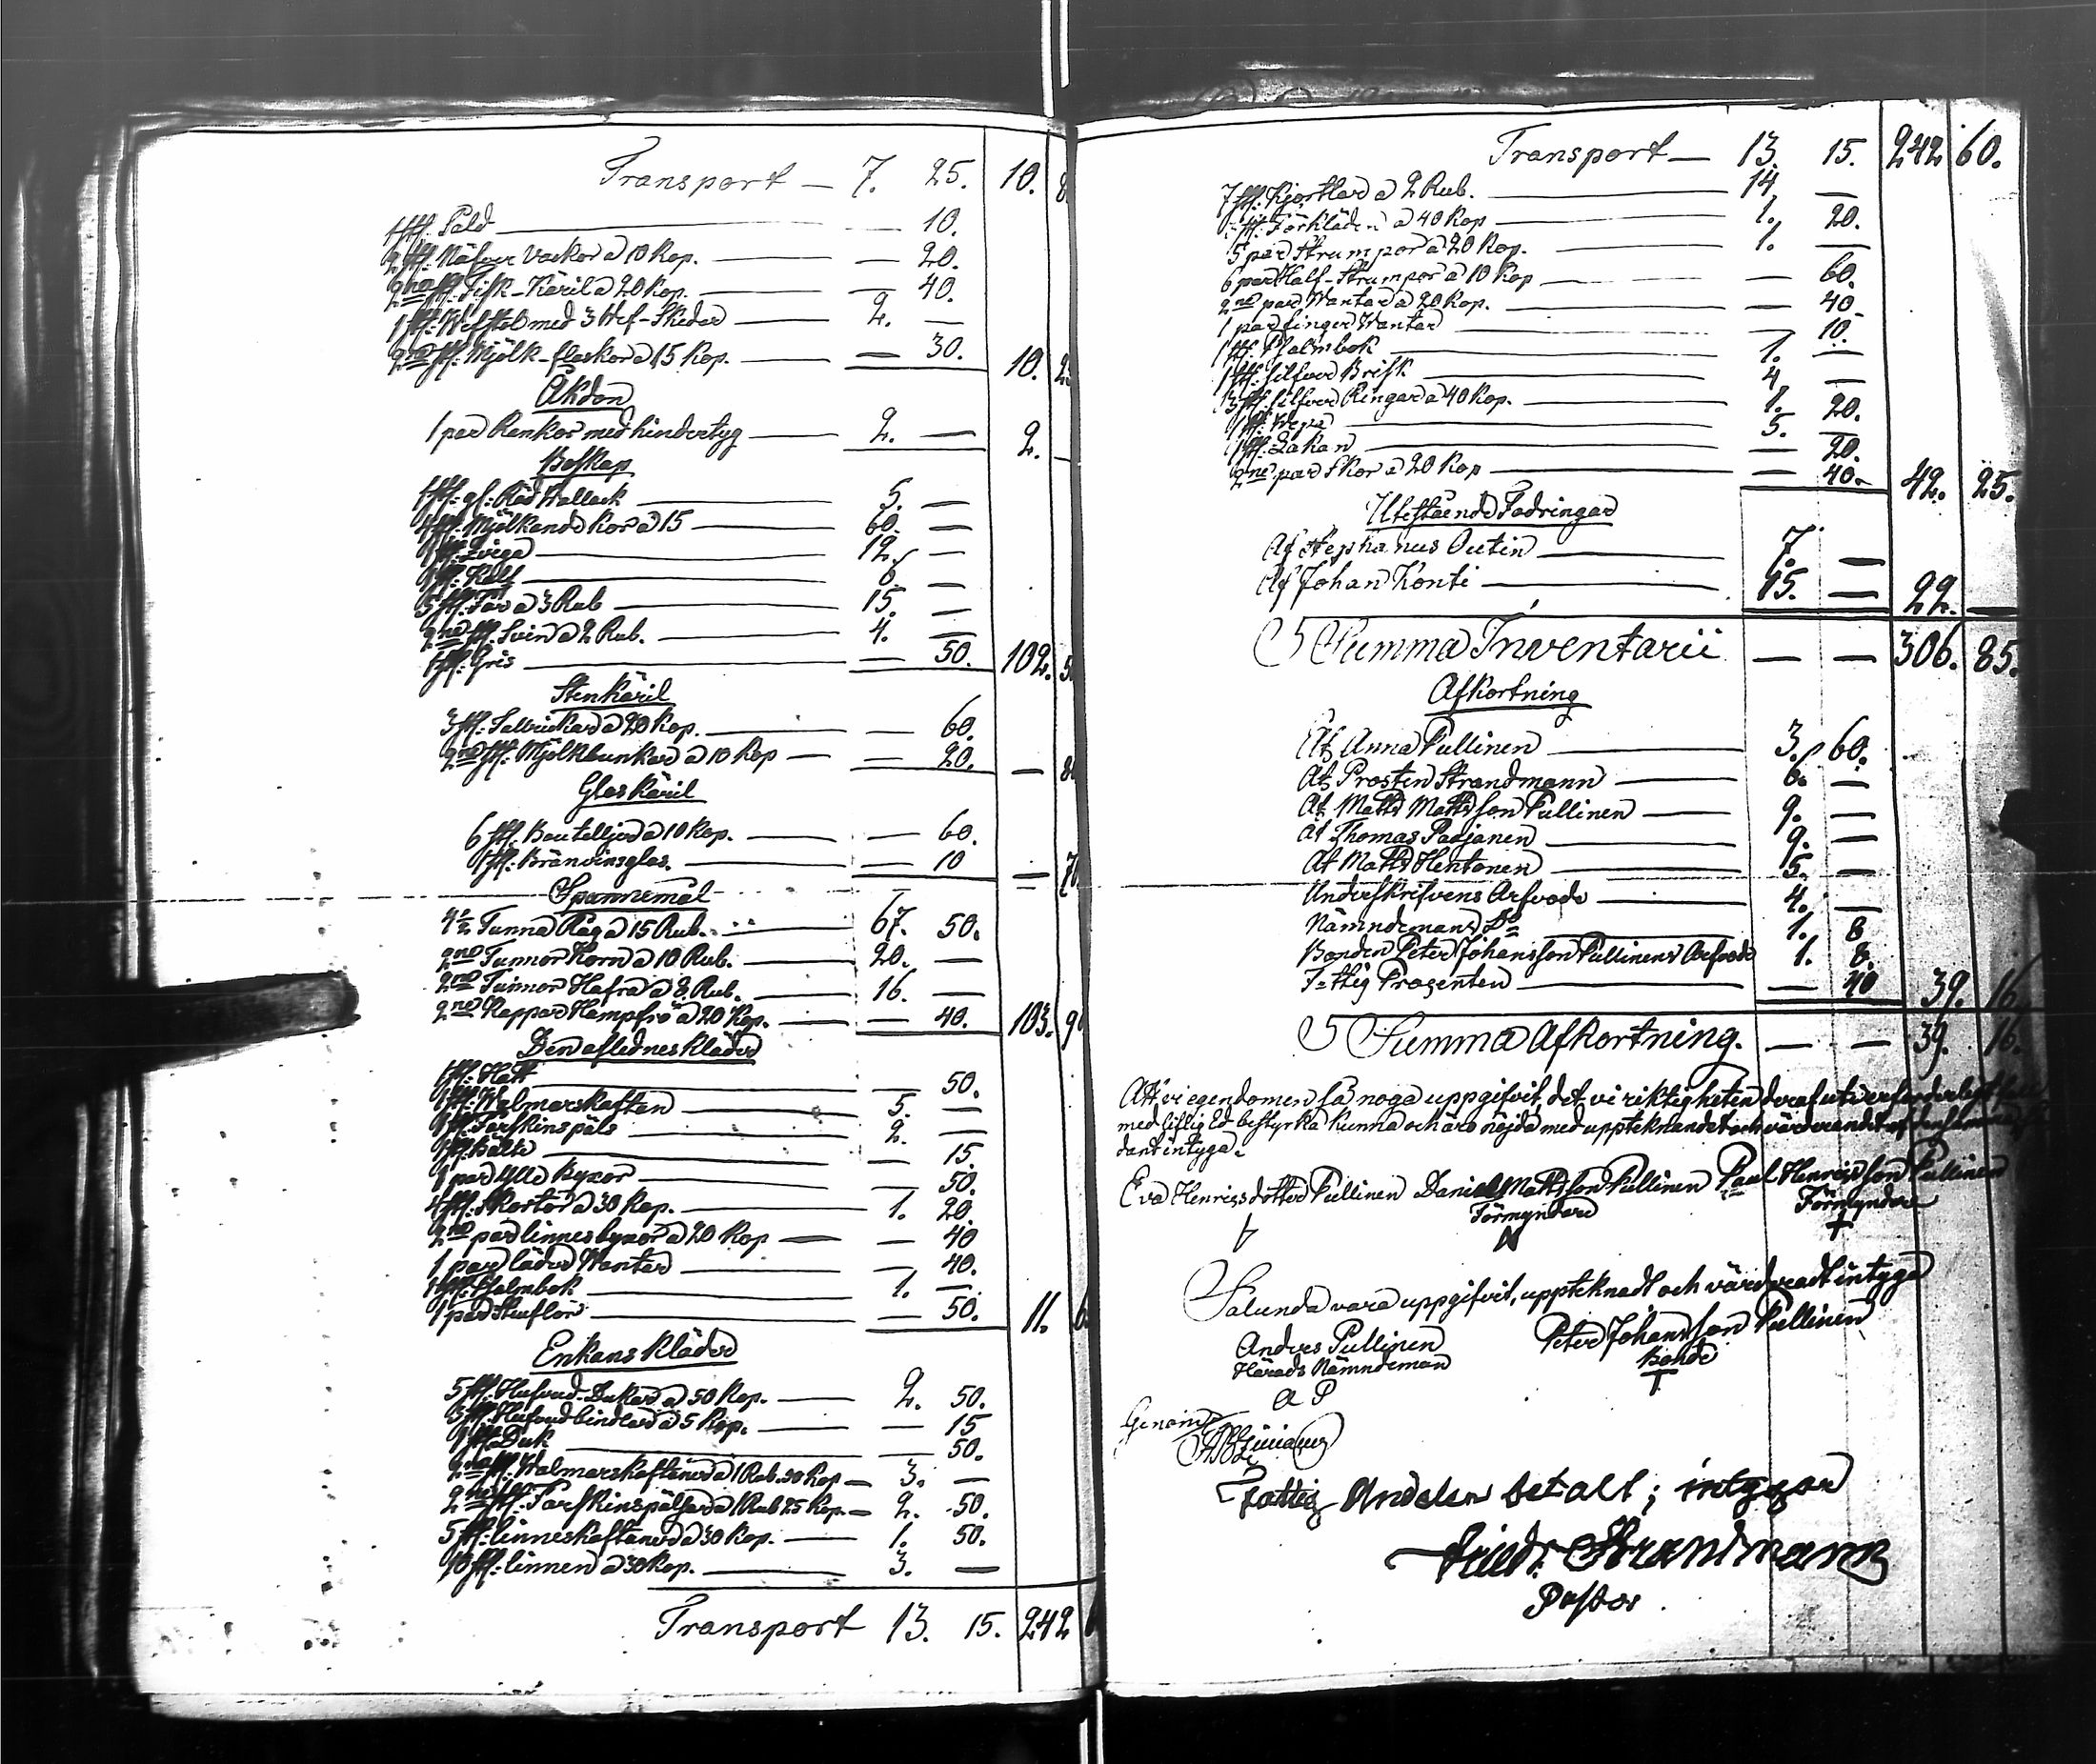 Transport — 7. 25. 10. 8
1 st: Såld — 10.
2 st: Näfver Vackor a 10 Kop. — 20.
2ne st: Fisk-Käril a 20 Kop. — 40.
1 st: Wefstol med 3 Wef-Skedar — 2. —
2ne st: Mjölk-flaskor a 15 Kop. — 30. 10. 25
Åkdon
1 par Kankor med hindertyg — 2. — 2. —
Boskap
1 st: gl: Röd Wallack — 5. —
4 st: Mjölkande Kor a 15 — 60. —
1 st: Qviga — 12. —
st: Kalf — 6. —
5 st: Får a 3 Rub — 15. —
2ne st: Svin a 2 Rub. — 4. —
1 st: Gris — 50. 102. 5
Stenkäril
3 st: a 20 Kop. — 60.
2ne st: Mjölkbunkar a 10 Kop — 20. — 8
Glas Käril
6 st: Boutelljer a 10 Kop. — 60.
1 st: Bränvinsglas. — 10 — 7
Spannemål
4½ Tunna Råg a 15 Rub. 67. 50.
2ne Tunnor Korn a 10 Rub. — 20. —
2ne Tunnor Hafra a 8 Rub. — 16. —
2ne Kappar Hampfrö a 20 Kop. — 40. 103. 9
Den aflednes Kläder
1 st: Hatt — 50.
1 st: Walmarskaftan — 5. —
1 st: Fårskinspäls — 2. —
1 st: Bälte — 15.
1 par Ylle Byxor — 50.
4 st: Skortor a 30 Kop. — 1. 20
2ne par linnesbyxor a 20 Kop — 40
1 par läder Wantar — 40.
1 st: Psalmbok — 1. —
1 par Stuflor — 50. 11. 6
Enkans Kläder
5 st: Hufvud-Dukar a 50 Kop. — 2. 50.
3 st: Hufvudbindlar a 5 Kop. — 15
1 st: Duk — 50.
2ne st: Walmarskaftaner a 1 Rub. 50 Kop — 3. —
2ne st: Fårskinspälsar a 1 Rub 25 Kop. — 2. 50.
5 st: linneskaftaner a 30 Kop. — 1. 50.
10 st: linnen a 30 Kop. — 3. —
Transport 13. 15. 242
Transport — 13. 15. 242 60.
7 st: Kjortlar a 2 Rub. — 14. —
st: Förkläden a 40 Kop — 1. 20.
5 par Strumpor a 20 Kop. — 1. —
6 par Half-Strumpor a 10 Kop — 60.
2ne par Wantar a 20 Kop. — 40
1 par finger Wantar — 10.
1 st: Psalmbok — 1. —
1 st: silfver Brisk — 4 —
3 st: silfver Ringar a 40 Kop. — 1. 20.
1 st: Wepa — 5. —
1 st: Lakan — 20.
2ne par Skor a 20 Kop — 40. 42. 25.
Utestående Fodringar
Af Stephanus Outin — 7. —
Af Johan Konti — 15. — 22. —
Summa Inventarii — — 306. 85.
Afkortning
At Anna Pullinen — 3. 60.
At Prosten Strandmann — 6. —
At Matts Mattsson Pullinen — 9. —
At Thomas Parjanen — 9. —
At Matts Hentonen — 5. —
Underskrifvens Arfvode — 4. —
Nämndemans Do — 1. 8
Bonden Peter Johansson Pullinens Arfvode 1. 8.
Fattig Procenten — 40 39. 16.
Summa Afkortning. — — 39. 16.
Att vi egendomen så noga uppgifvit, det vi riktigheten deraf
med liflig Ed bestyrka kunna och äro nöjda med uppteknandet och värderandet af
dant intyga.
Eva Henricsdotter Pullinen Daniel Mattsson Pullinen Paul Henricsson Pullinen
Förmyndare Förmyndare
Sålunda vara uppgifvit, uppteknadt och värderadt intyga
Anders Pullinen Peter Johansson Pullinen
Härads Nämndeman Bonde
A P
Genom
Fattig Andelen betalt; intygar
Friedr. Strandmann
Pastor